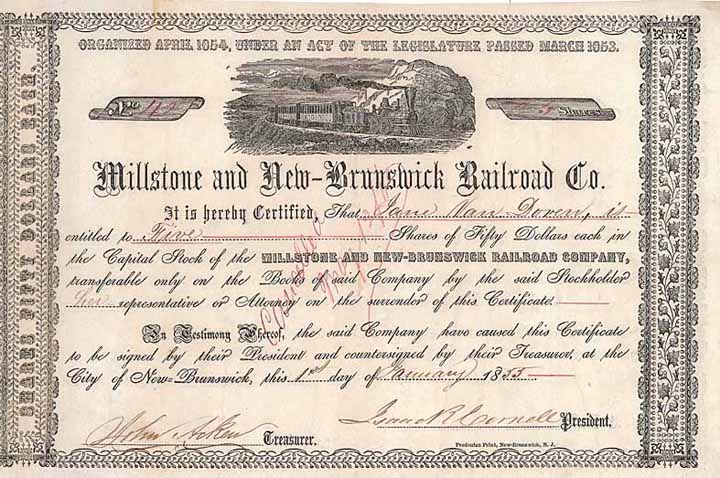 ORGANIZED APRIL 1854, UNDER AN ACT OF THE LEGISLATURE PASSED MARCH 1853.
No Shares
Millstone and New-Brunswick Railroad Co.
It is hereby Certified, That Jane Van Doren, is
entitled to Five Shares of Fifty Dollars each in
the Capital Stock of the MILLSTONE AND NEW-BRUNSWICK RAILROAD COMPANY,
transferable only on the Books of said Company by the said Stockholder
her representative or Attorney on the surrender of this Certificate.
In Testimony Whereof, the said Company have caused this Certificate
to be signed by their President and countersigned by their Treasurer, at the
City of New-Brunswick, this 1st day of January 1855
John Acken Treasurer.
Isaac R. Cornell President.
Fredonian Print, New-Brunswick, N. J.
SHARES FIFTY DOLLARS EACH.
Cancelled